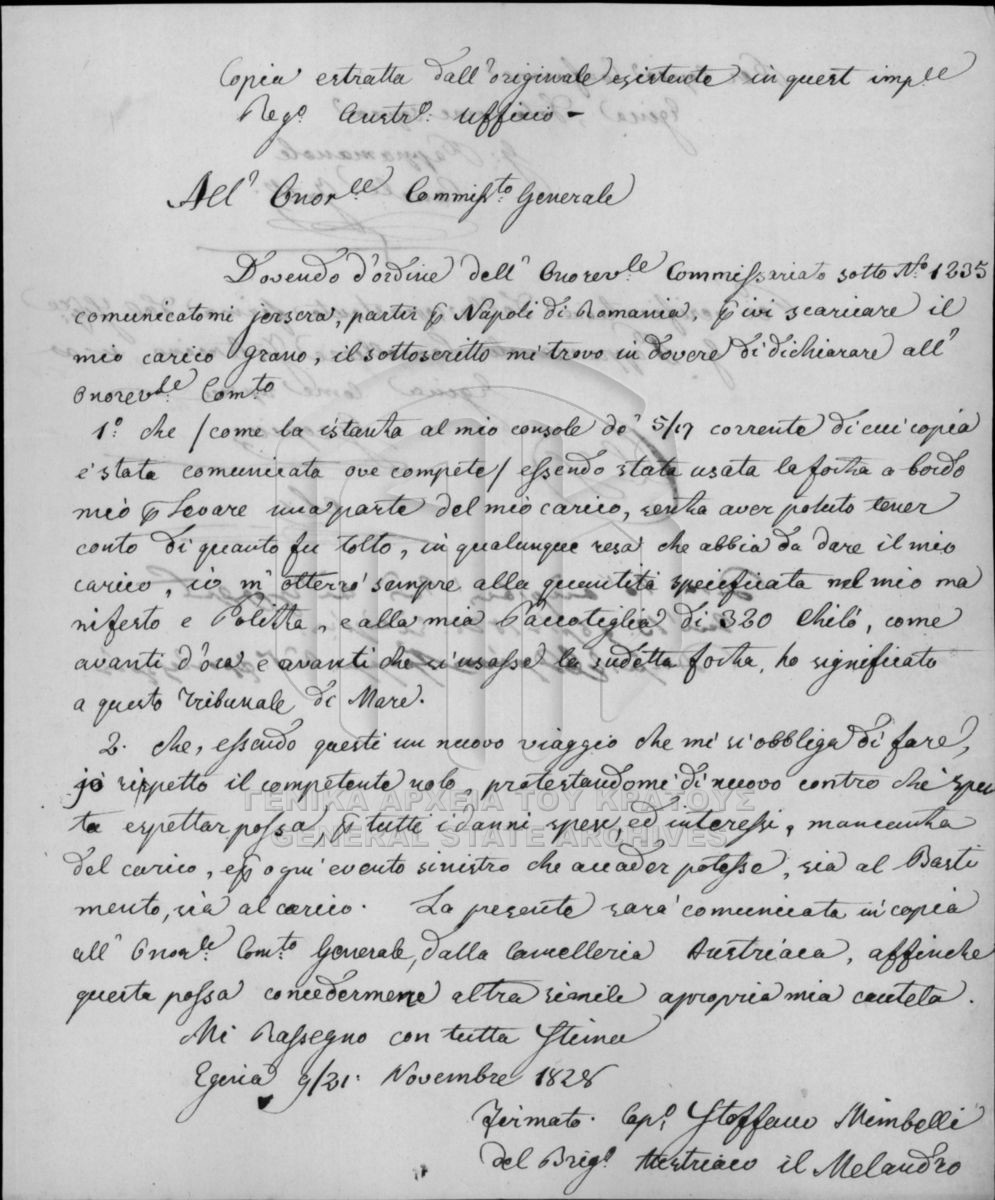 Copia estratta dall'originale esistente in quest imp.le
Reg.o Austr.o uffizio -
All' Onor.le Commiss.to Generale
Dovendo d'ordine dell' Onorev.le Commissariato sotto N.o 1235
comunicatomi jersera, partir p Napoli di Romania, p ivi scaricare il
mio carico grano, il sottoscritto mi trovo in dovere di dichiarare all'
Onorev.le Com.to
1.o che / come la istanza al mio console do' 5/17 corrente di cui copia
è stata comunicata ove compete / essendo stata usata la forza a bordo
mio p levare una parte del mio carico, senza aver potuto tener
conto di quanto fu tolto, in qualunque resa che abbia da dare il mio
carico, io m'otterrò sempre alla quantità specificata nel mio ma
nifesto e Polizza, e alla mia Paccotiglia di 320 Chilò, come
avanti d'ora e avanti che si usasse la sudetta forza, ho significato
a questo Tribunale di Mare.
2. che, essendo questi un nuovo viaggio che mi si obbliga di fare,
jo rispetto il competente nolo, protestandomi di nuovo contro chi spet
ta espettar possa, p tutti i danni spese, ed interessi, mancanza
del carico, e p ogni evento sinistro che accader potesse, sia al Basti
mento, sia al carico. La presente sarà comunicata in copia
all' Onor.le Com.to Generale, dalla Cancelleria Austriaca, affinche
questa possa concedermene altra simile a propria mia cautela.
Mi Rassegno con tutta Stima
Egina 9/21. Novembre 1828
Firmato. Cap.o Steffano Mimbelli
del Brig.o Austriaco il Melandro
ΓΕΝΙΚΑ ΑΡΧΕΙΑ ΤΟΥ ΚΡΑΤΟΥΣ
GENERAL STATE ARCHIVES